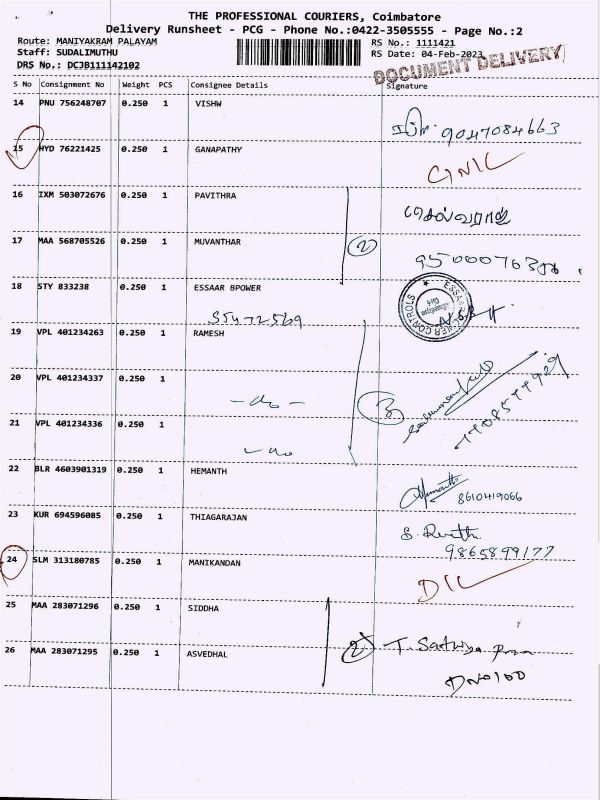 THE PROFESSIONAL COURIERS, Coimbatore
Delivery Runsheet - PCG - Phone No.:0422-3505555 - Page No.:2
Route: MANIYAKRAM PALAYAM
RS No.: 1111421
Staff: SUDALIMUTHU
RS Date: 04-Feb-2023
DRS No.: DCJB111142102
DOCUMENT DELIVERY
S No Consignment No Weight PCS Consignee Details Signature
14 PNU 756248707 0.250 1 VISHW
9047084663
15 HYD 76221425 0.250 1 GANAPATHY
16 IXM 503072676 0.250 1 PAVITHRA
செல்வராஜ்
17 MAA 568705526 0.250 1 MUVANTHAR
2
18 STY 833238 0.250 1 ESSAAR BPOWER
19 VPL 401234263 0.250 1 RAMESH
20 VPL 401234337 0.250 1
- do -
3
21 VPL 401234336 0.250 1
- do
22 BLR 4603901319 0.250 1 HEMANTH
Hemanth 8610419066
23 KUR 694596085 0.250 1 THIAGARAJAN
9865899177
24 SLM 313180785 0.250 1 MANIKANDAN
D/L
25 MAA 283071296 0.250 1 SIDDHA
2
26 MAA 283071295 0.250 1 ASVEDHAL